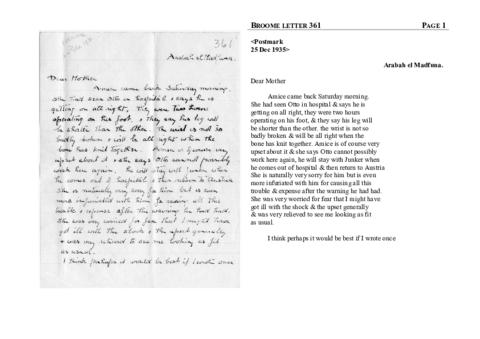 361
Arabah el Madfuna.
Dear Mother
Amice came back Saturday morning.
She had seen Otto in hospital & says he is
getting on all right, they were two hours
operating on his foot, & they say his leg will
be shorter than the other. The wrist is not so
badly broken & will be all right when the
bone has knit together. Amice is of course very
upset about it & she says Otto cannot possibly
work here again, he will stay with Junker when
he comes out of hospital & then return to Austria
She is naturally very sorry for him but is even
more infuriated with him for causing all this
trouble & expense after the warning he had had.
She was very worried for fear that I might have
got ill with the shock & the upset generally
& was very relieved to see me looking as fit
as usual.
I think perhaps it would be best if I wrote once
BROOME LETTER 361 PAGE 1
<Postmark
25 Dec 1935>
Arabah el Madfuna.
Dear Mother
Amice came back Saturday morning.
She had seen Otto in hospital & says he is
getting on all right, they were two hours
operating on his foot, & they say his leg will
be shorter than the other. the wrist is not so
badly broken & will be all right when the
bone has knit together. Amice is of course very
upset about it & she says Otto cannot possibly
work here again, he will stay with Junker when
he comes out of hospital & then return to Austria
She is naturally very sorry for him but is even
more infuriated with him for causing all this
trouble & expense after the warning he had had.
She was very worried for fear that I might have
got ill with the shock & the upset generally
& was very relieved to see me looking as fit
as usual.
I think perhaps it would be best if I wrote once